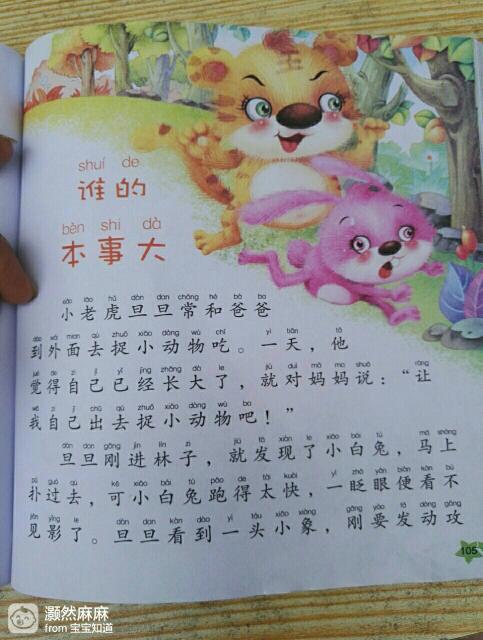 shuí de
谁的
běn shi dà
本事大
xiǎo lǎo hǔ dàn dan cháng hé bà ba
小老虎旦旦常和爸爸
dào wài mian qù zhuō xiǎo dòng wù chī yì tiān tā
到外面去捉小动物吃。一天，他
jué de zì jǐ yǐ jīng zhǎng dà le jiù duì mā ma shuō ràng
觉得自己已经长大了，就对妈妈说：“让
wǒ zì jǐ chū qù zhuō xiǎo dòng wù ba
我自己出去捉小动物吧！”
dàn dan gāng jìn lín zi jiù fā xiàn le xiǎo bái tù mǎ shàng
旦旦刚进林子，就发现了小白兔，马上
pū guò qù kě xiǎo bái tù pǎo de tài kuài yì zhǎ yǎn biàn kàn bú
扑过去，可小白兔跑得太快，一眨眼便看不
jiàn yǐng le dàn dan kàn dào yì tóu xiǎo xiàng gāng yào fā dòng gōng
见影了。旦旦看到一头小象，刚要发动攻
105
灏然麻麻
from 宝宝知道